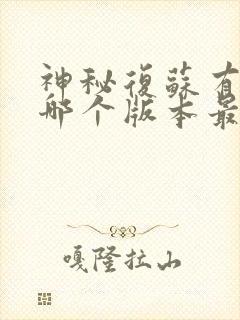 神秘復蘇有
哪个版本最
嘎隆拉山